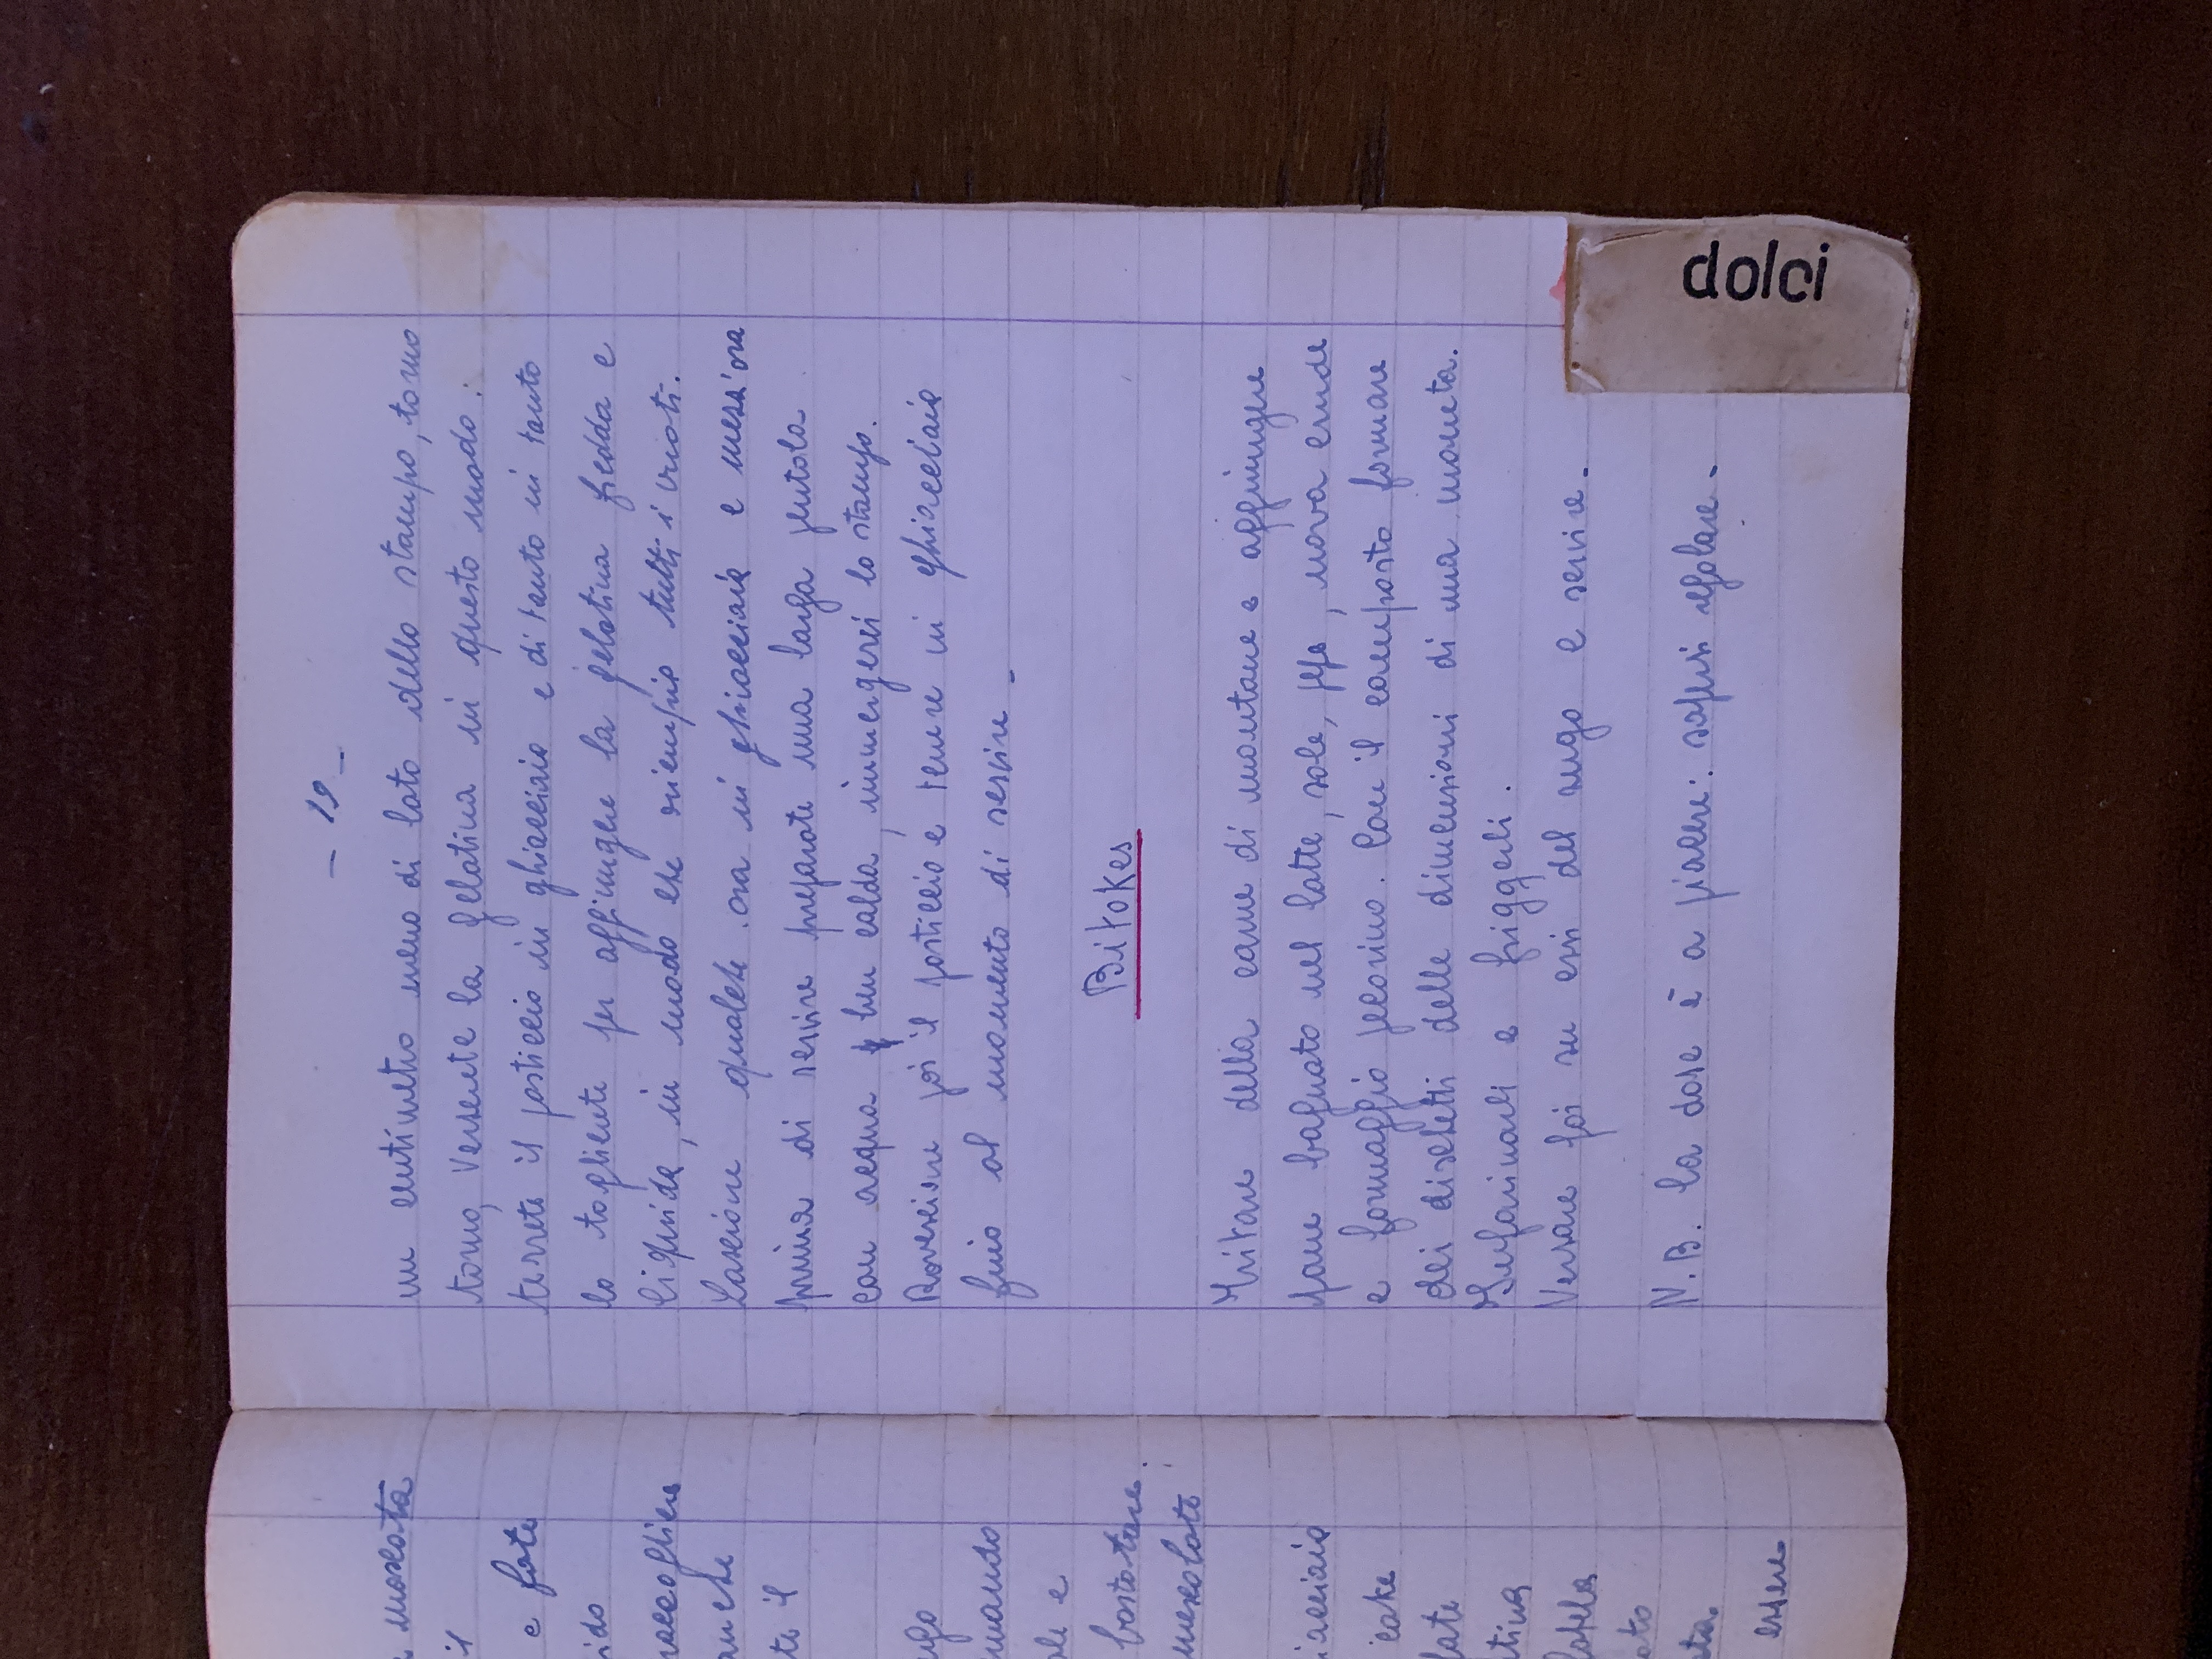 moscata
il
e fate
raccogliere
anche
il
e
bastatare.
mescolate
cake
fate
essere
- 19 -
un centimetro meno di lato dello stampo, torno
torno, Verserete la gelatina in questo modo:
terrete il pasticcio in ghiacciaia e di tanto in tanto
lo toglierete per aggiungere la gelatina fredda e
liquida, in modo che riempia tutti i vuoti.
Lasciare qualche ora in ghiacciaia e mezz'ora
prima di servire preparate una larga pentola
con acqua ben calda, immergerci lo stampo.
Rovesciare poi il pasticcio e tenere in ghiacciaia
fino al momento di servire -
Bitokes
Tritare della carne di montone e aggiungere
pane bagnato nel latte, sale, pepe, uova crude
e formaggio pecorino. Con il composto formare
dei dischetti delle dimensioni di una moneta.
Infarinarli e friggerli.
Versare poi su essi del sugo e servire -
N.B. la dose è a piacere: sapersi regolare -
dolci